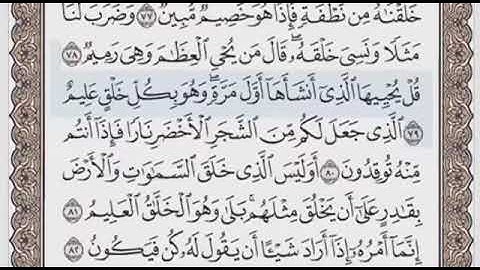 خَلَقْنَٰهُ مِن نُّطْفَةٍ فَإِذَا هُوَ خَصِيمٌ مُّبِينٌ ٧٧ وَضَرَبَ لَنَا
مَثَلًا وَنَسِىَ خَلْقَهُۥ ۖ قَالَ مَن يُحْىِ ٱلْعِظَٰمَ وَهِىَ رَمِيمٌ ٧٨
قُلْ يُحْيِيهَا ٱلَّذِىٓ أَنشَأَهَآ أَوَّلَ مَرَّةٍ ۖ وَهُوَ بِكُلِّ خَلْقٍ عَلِيمٌ
٧٩ ٱلَّذِى جَعَلَ لَكُم مِّنَ ٱلشَّجَرِ ٱلْأَخْضَرِ نَارًا فَإِذَآ أَنتُم
مِّنْهُ تُوقِدُونَ ٨٠ أَوَلَيْسَ ٱلَّذِى خَلَقَ ٱلسَّمَٰوَٰتِ وَٱلْأَرْضَ
بِقَٰدِرٍ عَلَىٰٓ أَن يَخْلُقَ مِثْلَهُم ۚ بَلَىٰ وَهُوَ ٱلْخَلَّٰقُ ٱلْعَلِيمُ
٨١ إِنَّمَآ أَمْرُهُۥٓ إِذَآ أَرَادَ شَيْـًٔا أَن يَقُولَ لَهُۥ كُن فَيَكُونُ
٨٢